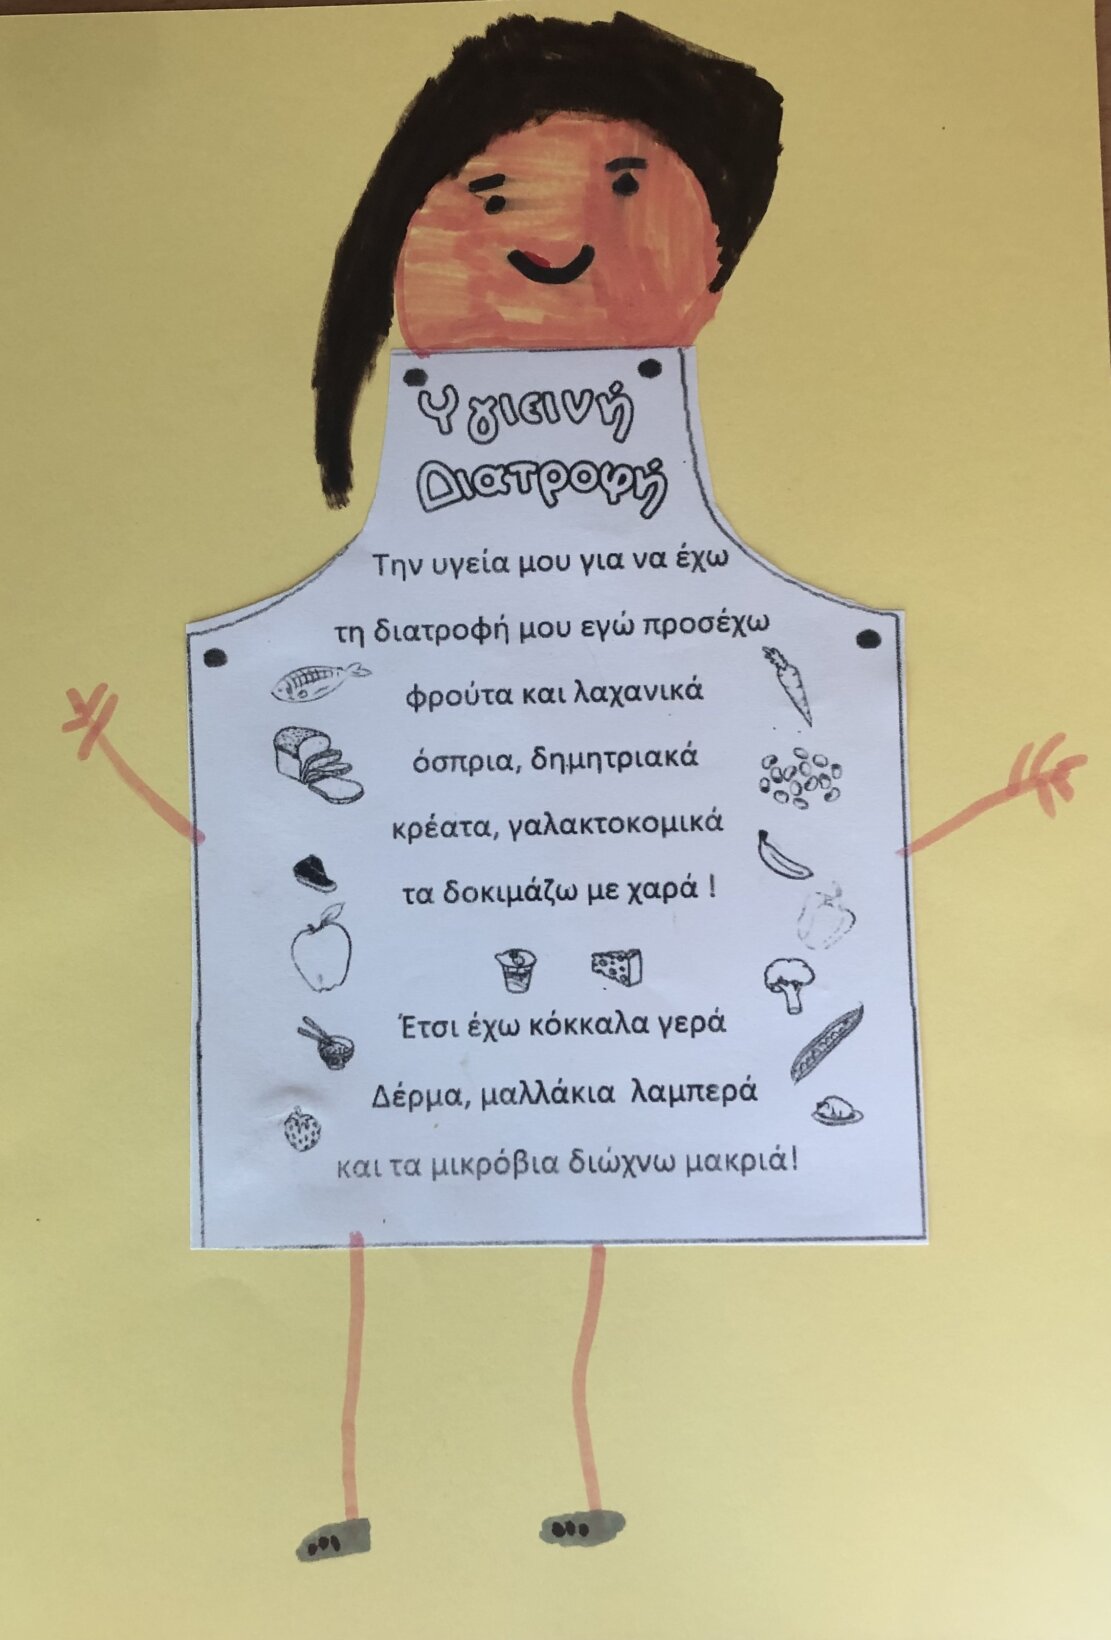 Υγιεινή
Διατροφή
Την υγεία μου για να έχω
τη διατροφή μου εγώ προσέχω
φρούτα και λαχανικά
όσπρια, δημητριακά
κρέατα, γαλακτοκομικά
τα δοκιμάζω με χαρά !
Έτσι έχω κόκκαλα γερά
Δέρμα, μαλλάκια λαμπερά
και τα μικρόβια διώχνω μακριά!